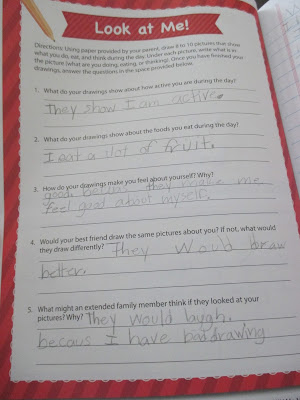 Look at Me!
Directions: Using paper provided by your parent, draw 8 to 10 pictures that show
what you do, eat, and think during the day. Under each picture, write what is in
the picture (what are you doing, eating, or thinking). Once you have finished your
drawings, answer the questions in the space provided below.
1. What do your drawings show about how active you are during the day?
They show I am active.
2. What do your drawings show about the foods you eat during the day?
I eat a lot of fruit.
3. How do your drawings make you feel about yourself? Why?
good. they me
feel good about myself.
4. Would your best friend draw the same pictures about you? If not, what would
they draw differently? They Woud draw
better.
5. What might an extended family member think if they looked at your
pictures? Why? They would laugh.
becaus I have bad drawing